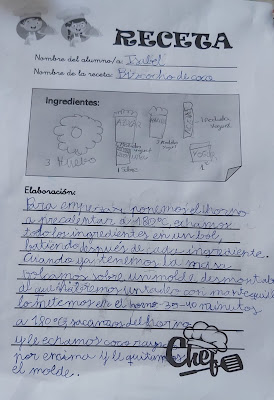 RECETA
Nombre del alumno/a: Isabel
Nombre de la receta: Bizcocho de coco
Ingredientes:
3 huevos
1 sobre
Elaboración:
Para empezar ponemos el horno
a precalentar a 180ºC, echamos
todo los ingredientes en un bol,
batiendo después de cada ingrediente.
Cuando ya tenemos la masa
volcamos sobre un molde desmontable
al que habremos untado con mantequilla
lo metemos en el horno 30-40 minutos
a 180ºC, sacamos del horno
y le echamos coco
por encima y le quitamos
el molde.
Chef